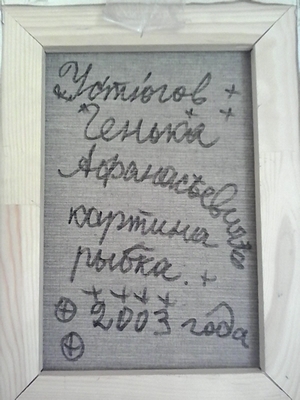 Устюгов +
Генька
Афанасьевича
картина
рыбка. +
++++
2003 года